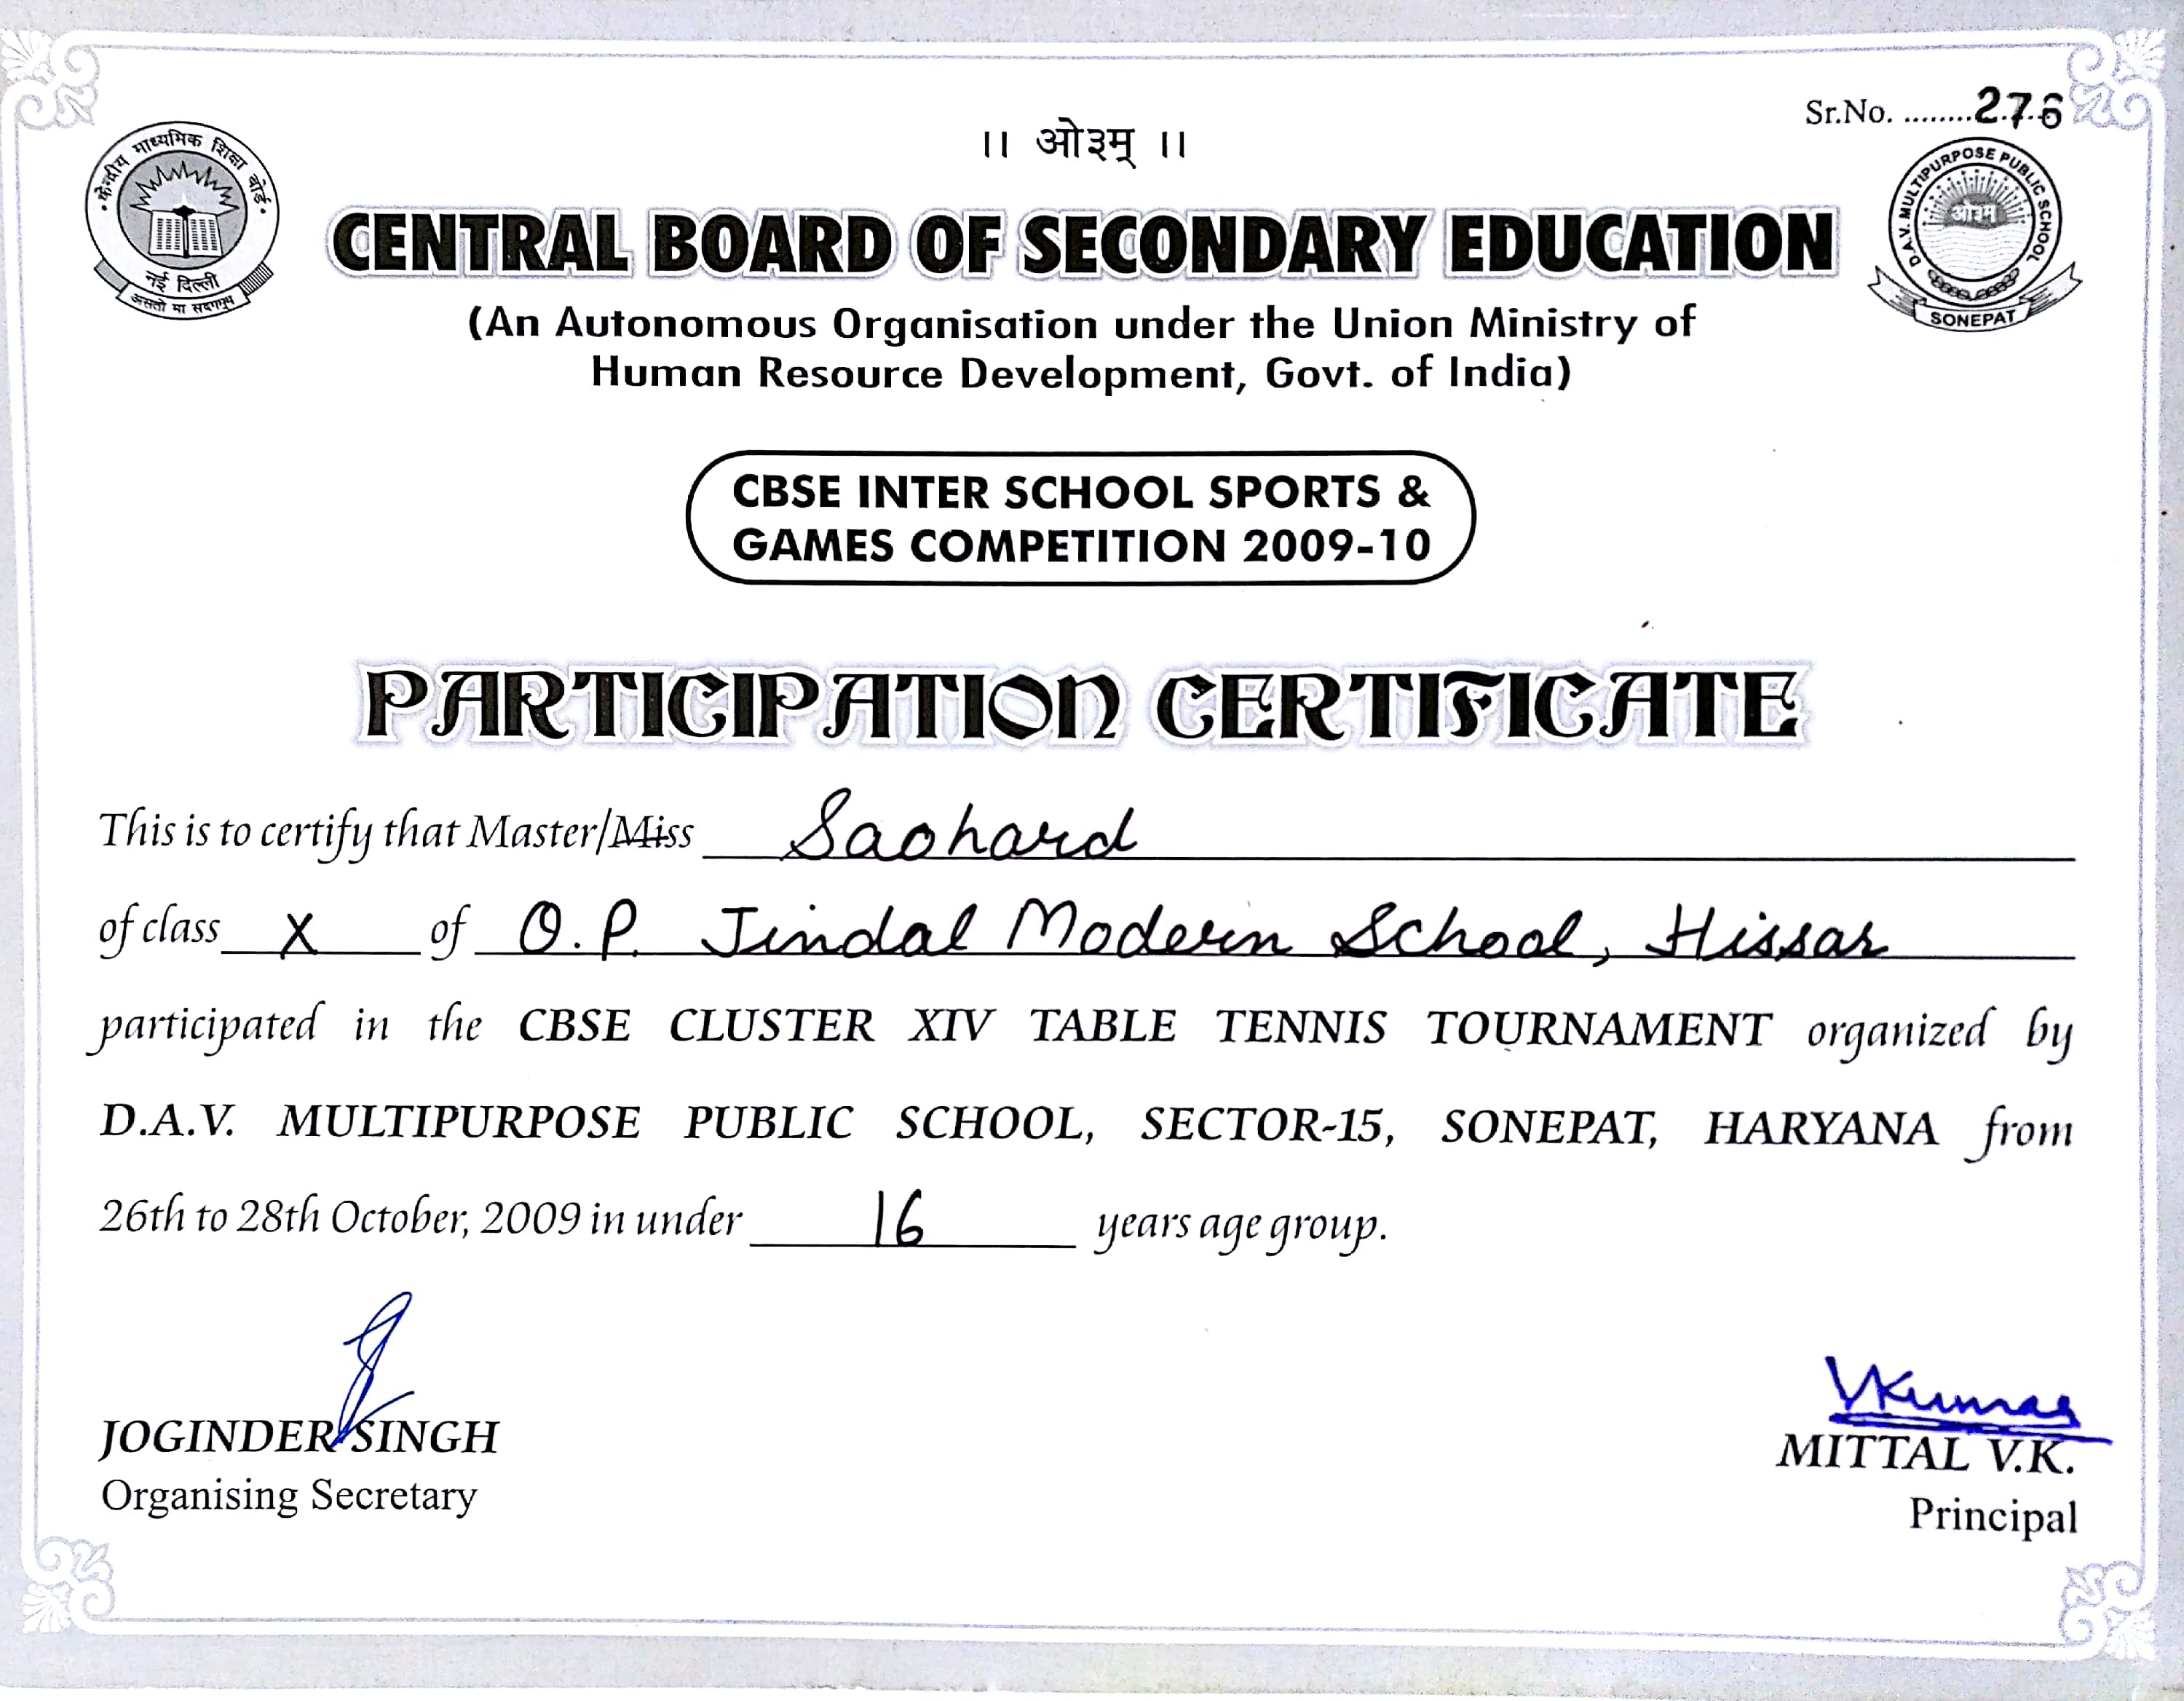 Sr.No. ........276
।। ओ३म् ।।
केन्द्रीय माध्यमिक शिक्षा बोर्ड
नई दिल्ली
असतो मा सद्गमय
D.A.V. MULTIPURPOSE PUBLIC SCHOOL
ओ३म्
SONEPAT
CENTRAL BOARD OF SECONDARY EDUCATION
(An Autonomous Organisation under the Union Ministry of
Human Resource Development, Govt. of India)
CBSE INTER SCHOOL SPORTS &
GAMES COMPETITION 2009-10
PARTICIPATION CERTIFICATE
This is to certify that Master/Miss Saohard
of class X of O.P. Jindal Modern School, Hissar
participated in the CBSE CLUSTER XIV TABLE TENNIS TOURNAMENT organized by
D.A.V. MULTIPURPOSE PUBLIC SCHOOL, SECTOR-15, SONEPAT, HARYANA from
26th to 28th October, 2009 in under 16 years age group.
VKumar
JOGINDER SINGH
MITTAL V.K.
Organising Secretary
Principal